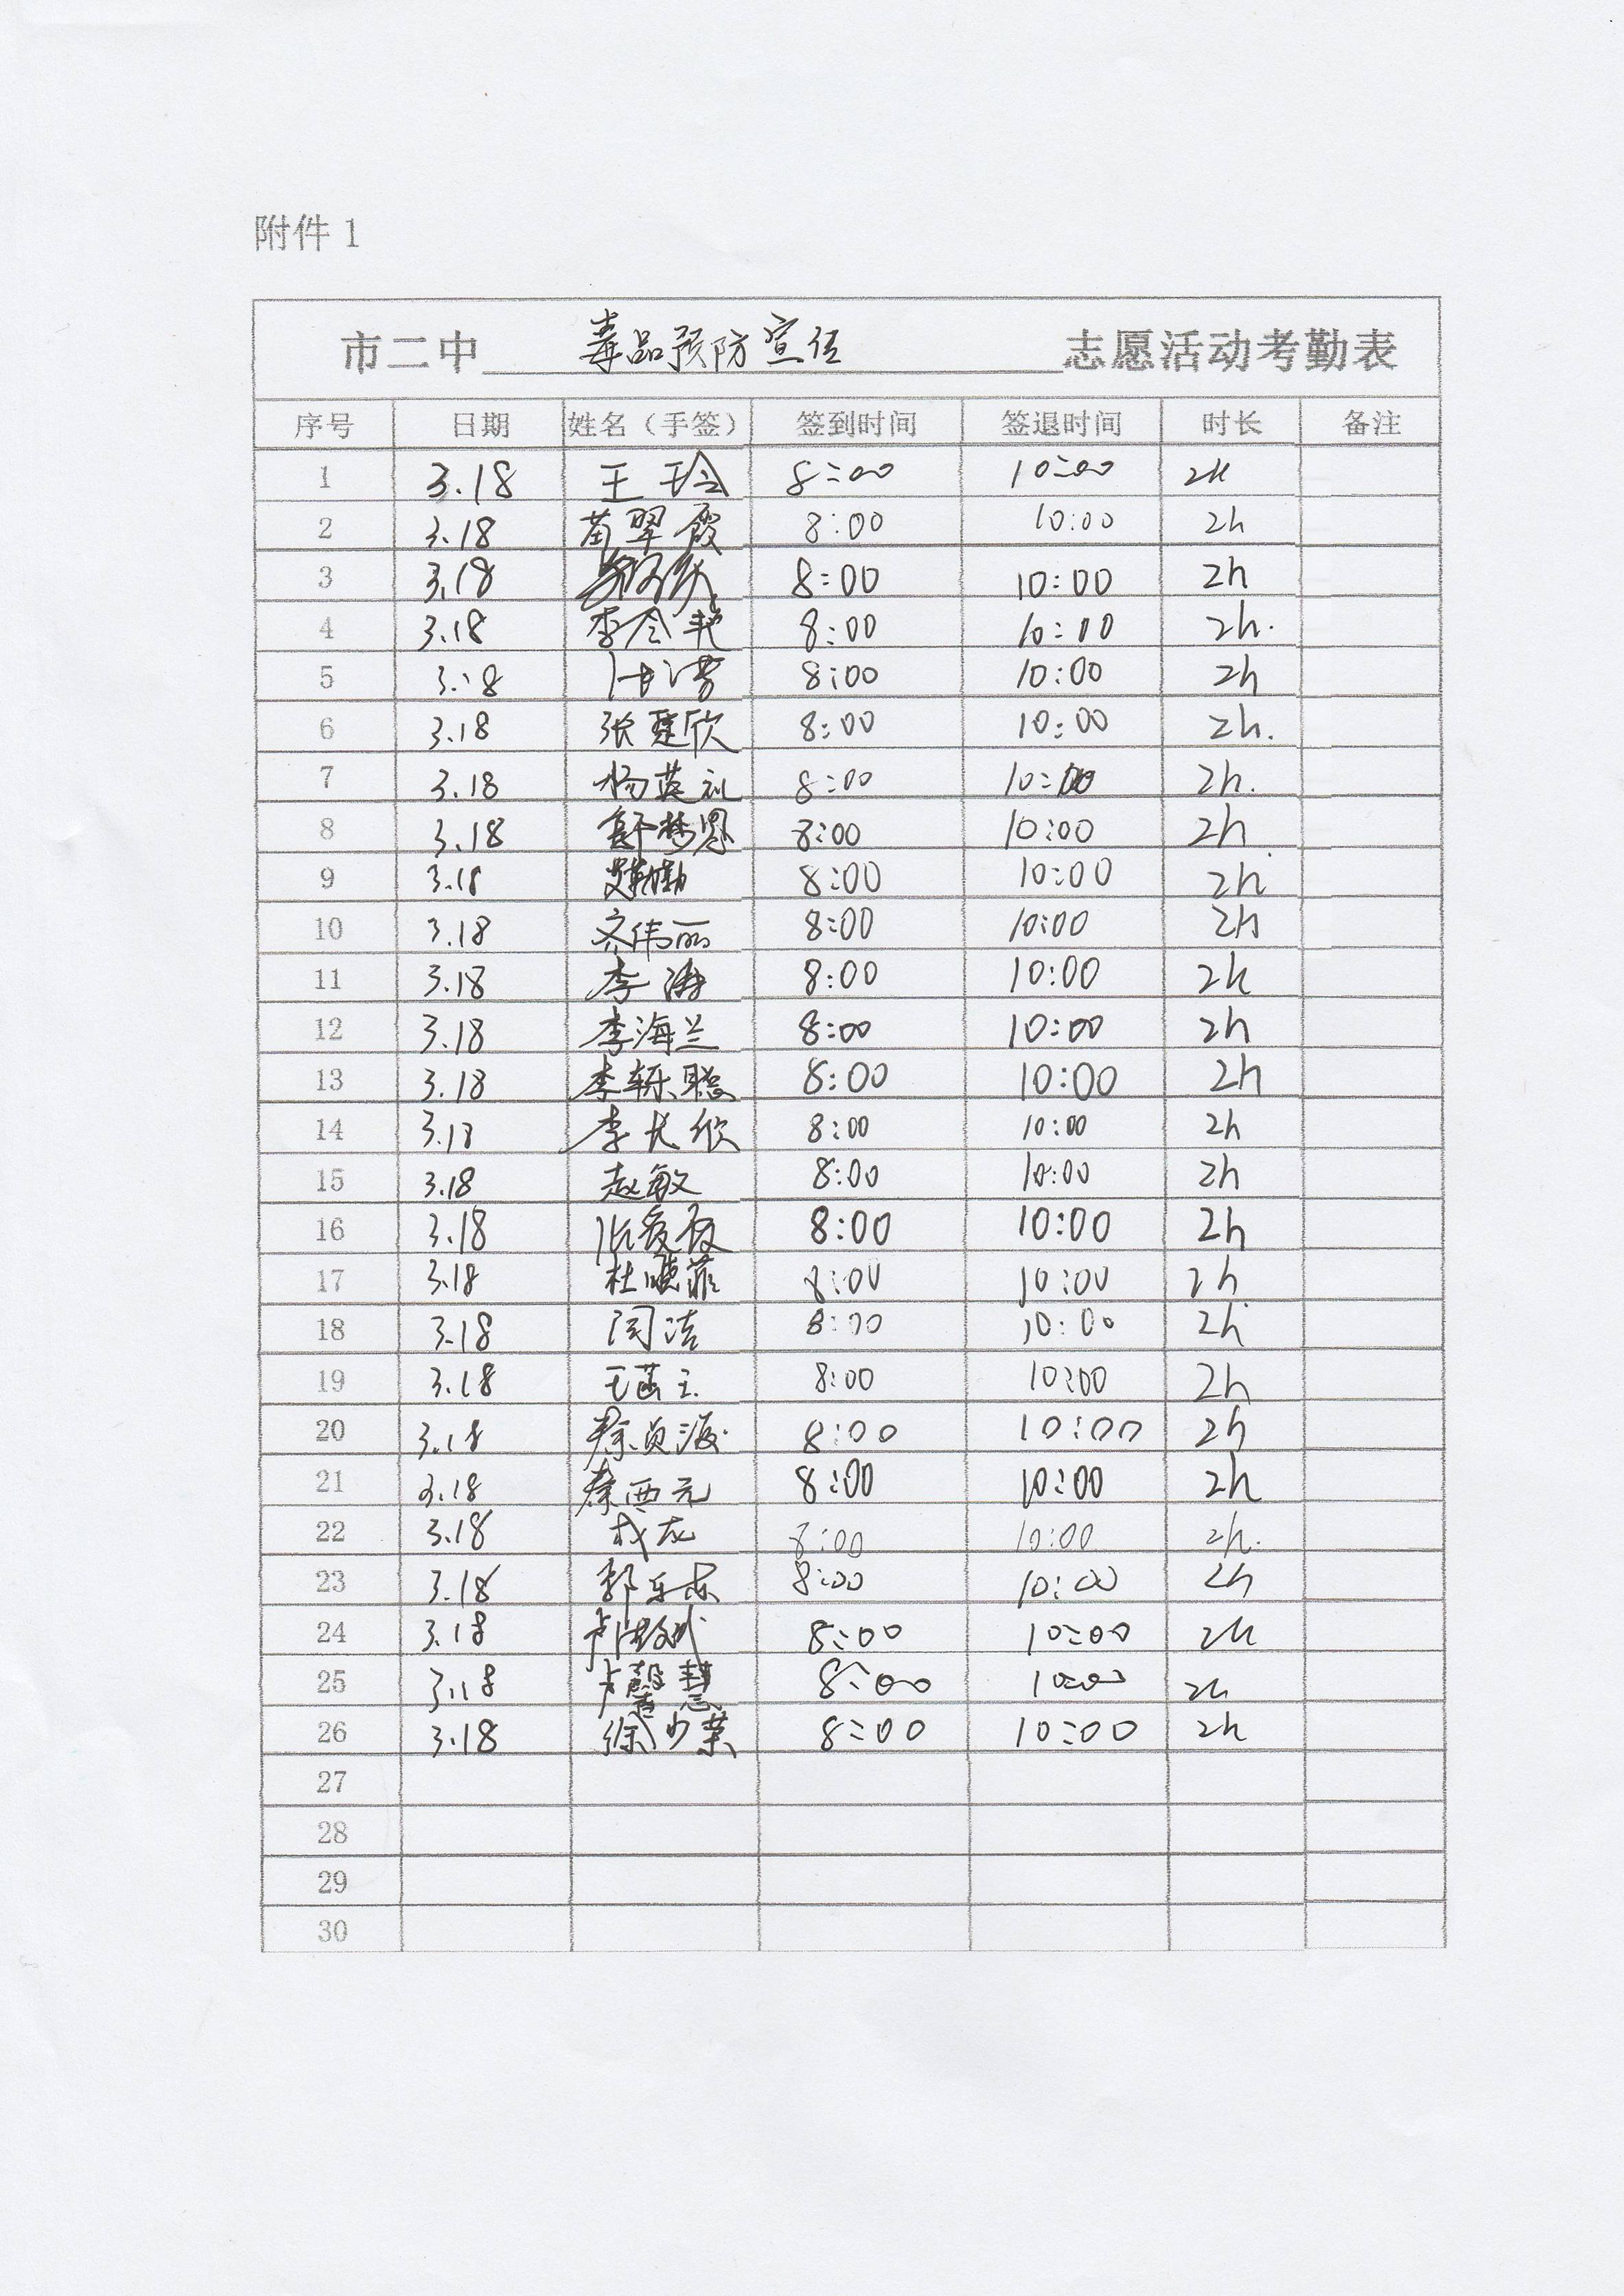 附件 1
市二中 毒品预防宣传 志愿活动考勤表
序号 日期 姓名（手签） 签到时间 签退时间 时长 备注
1 3.18 王玲 8:00 10:00 2h
2 3.18 苟翠霞 8:00 10:00 2h
3 3.18 8:00 10:00 2h
4 3.18 李令艳 8:00 10:00 2h.
5 3.18 8:00 10:00 2h
6 3.18 张建欣 8:00 10:00 2h.
7 3.18 杨英礼 8:00 10:00 2h.
8 3.18 8:00 10:00 2h
9 3.18 8:00 10:00 2h
10 3.18 齐伟丽 8:00 10:00 2h
11 3.18 李涛 8:00 10:00 2h
12 3.18 李海兰 8:00 10:00 2h
13 3.18 李轹聪 8:00 10:00 2h
14 3.18 李长欣 8:00 10:00 2h
15 3.18 赵敏 8:00 10:00 2h
16 3.18 张爱霞 8:00 10:00 2h
17 3.18 杜晓菲 8:00 10:00 2h
18 3.18 闫洁 8:00 10:00 2h
19 3.18 8:00 10:00 2h
20 3.18 8:00 10:00 2h
21 3.18 秦西元 8:00 10:00 2h
22 3.18 8:00 10:00 2h.
23 3.18 郭乐东 8:00 10:00 2h
24 3.18 8:00 10:00 2h
25 3.18 卢馨慧 8:00 10:00 2h
26 3.18 徐少荣 8:00 10:00 2h
27
28
29
30